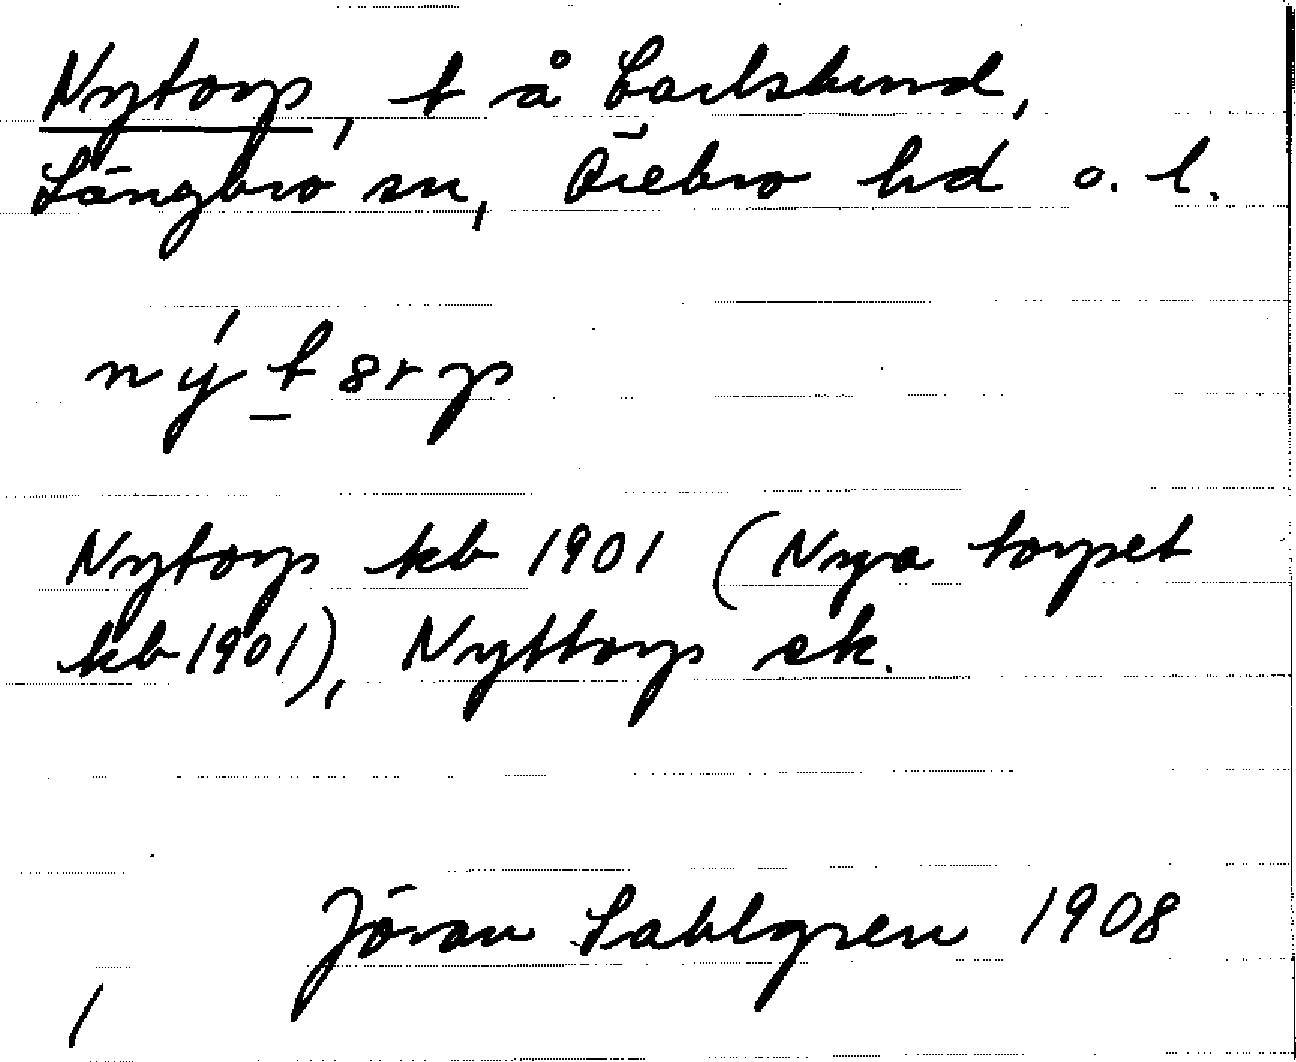 Nytorp, t å Karlslund,
Längbro sn, Örebro hd o. l.
ný t 8r p
Nytorp kb 1901 (Nya torpet
kb 1901), Nyttorp ek.
Jöran Sahlgren 1908
/